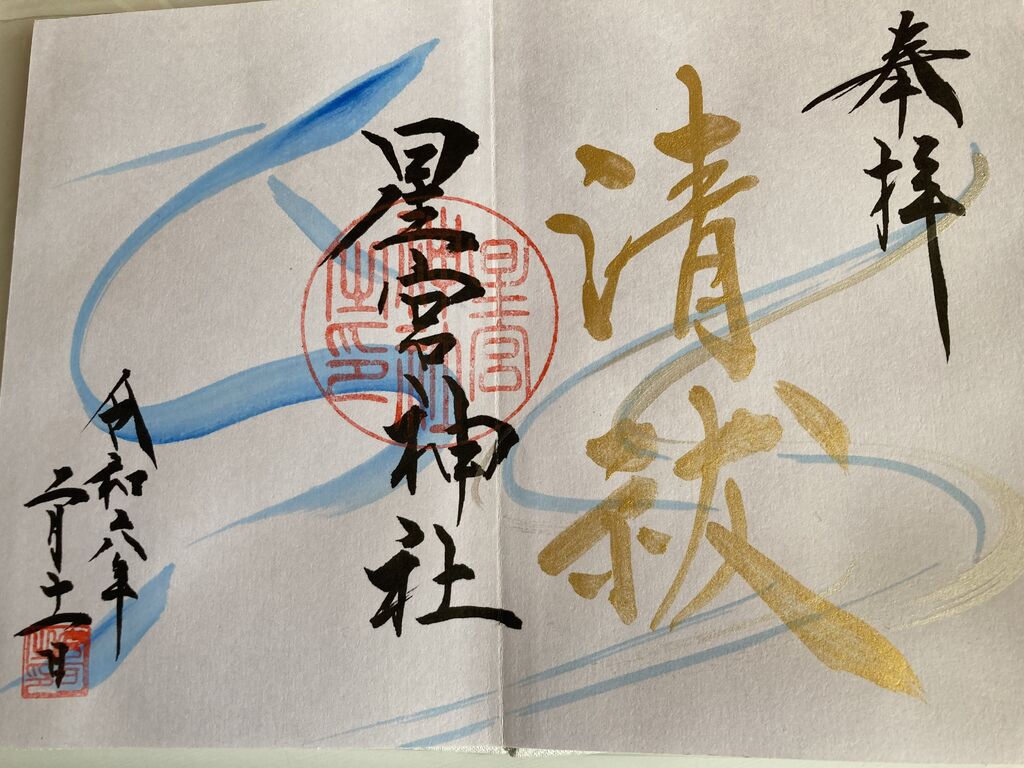 奉拝
清祓
星宮神社
星宮
神社
之印
令和六年
二月十一日